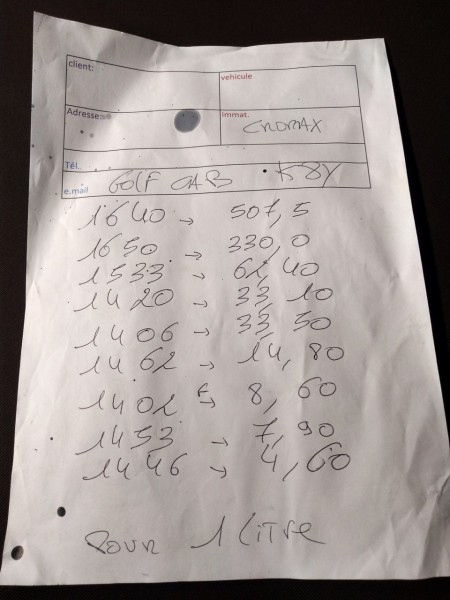 client:
vehicule
Adresse:
Immat. CROMAX
Tél.
e.mail GOLF CAB K8Y
1640 → 507,5
1650 → 330,0
1533 → 62,40
1420 → 33,10
1406 → 33,50
1462 → 14,80
1402 → 8,60
1453 → 7,90
1446 → 4,60
Pour 1 Litre